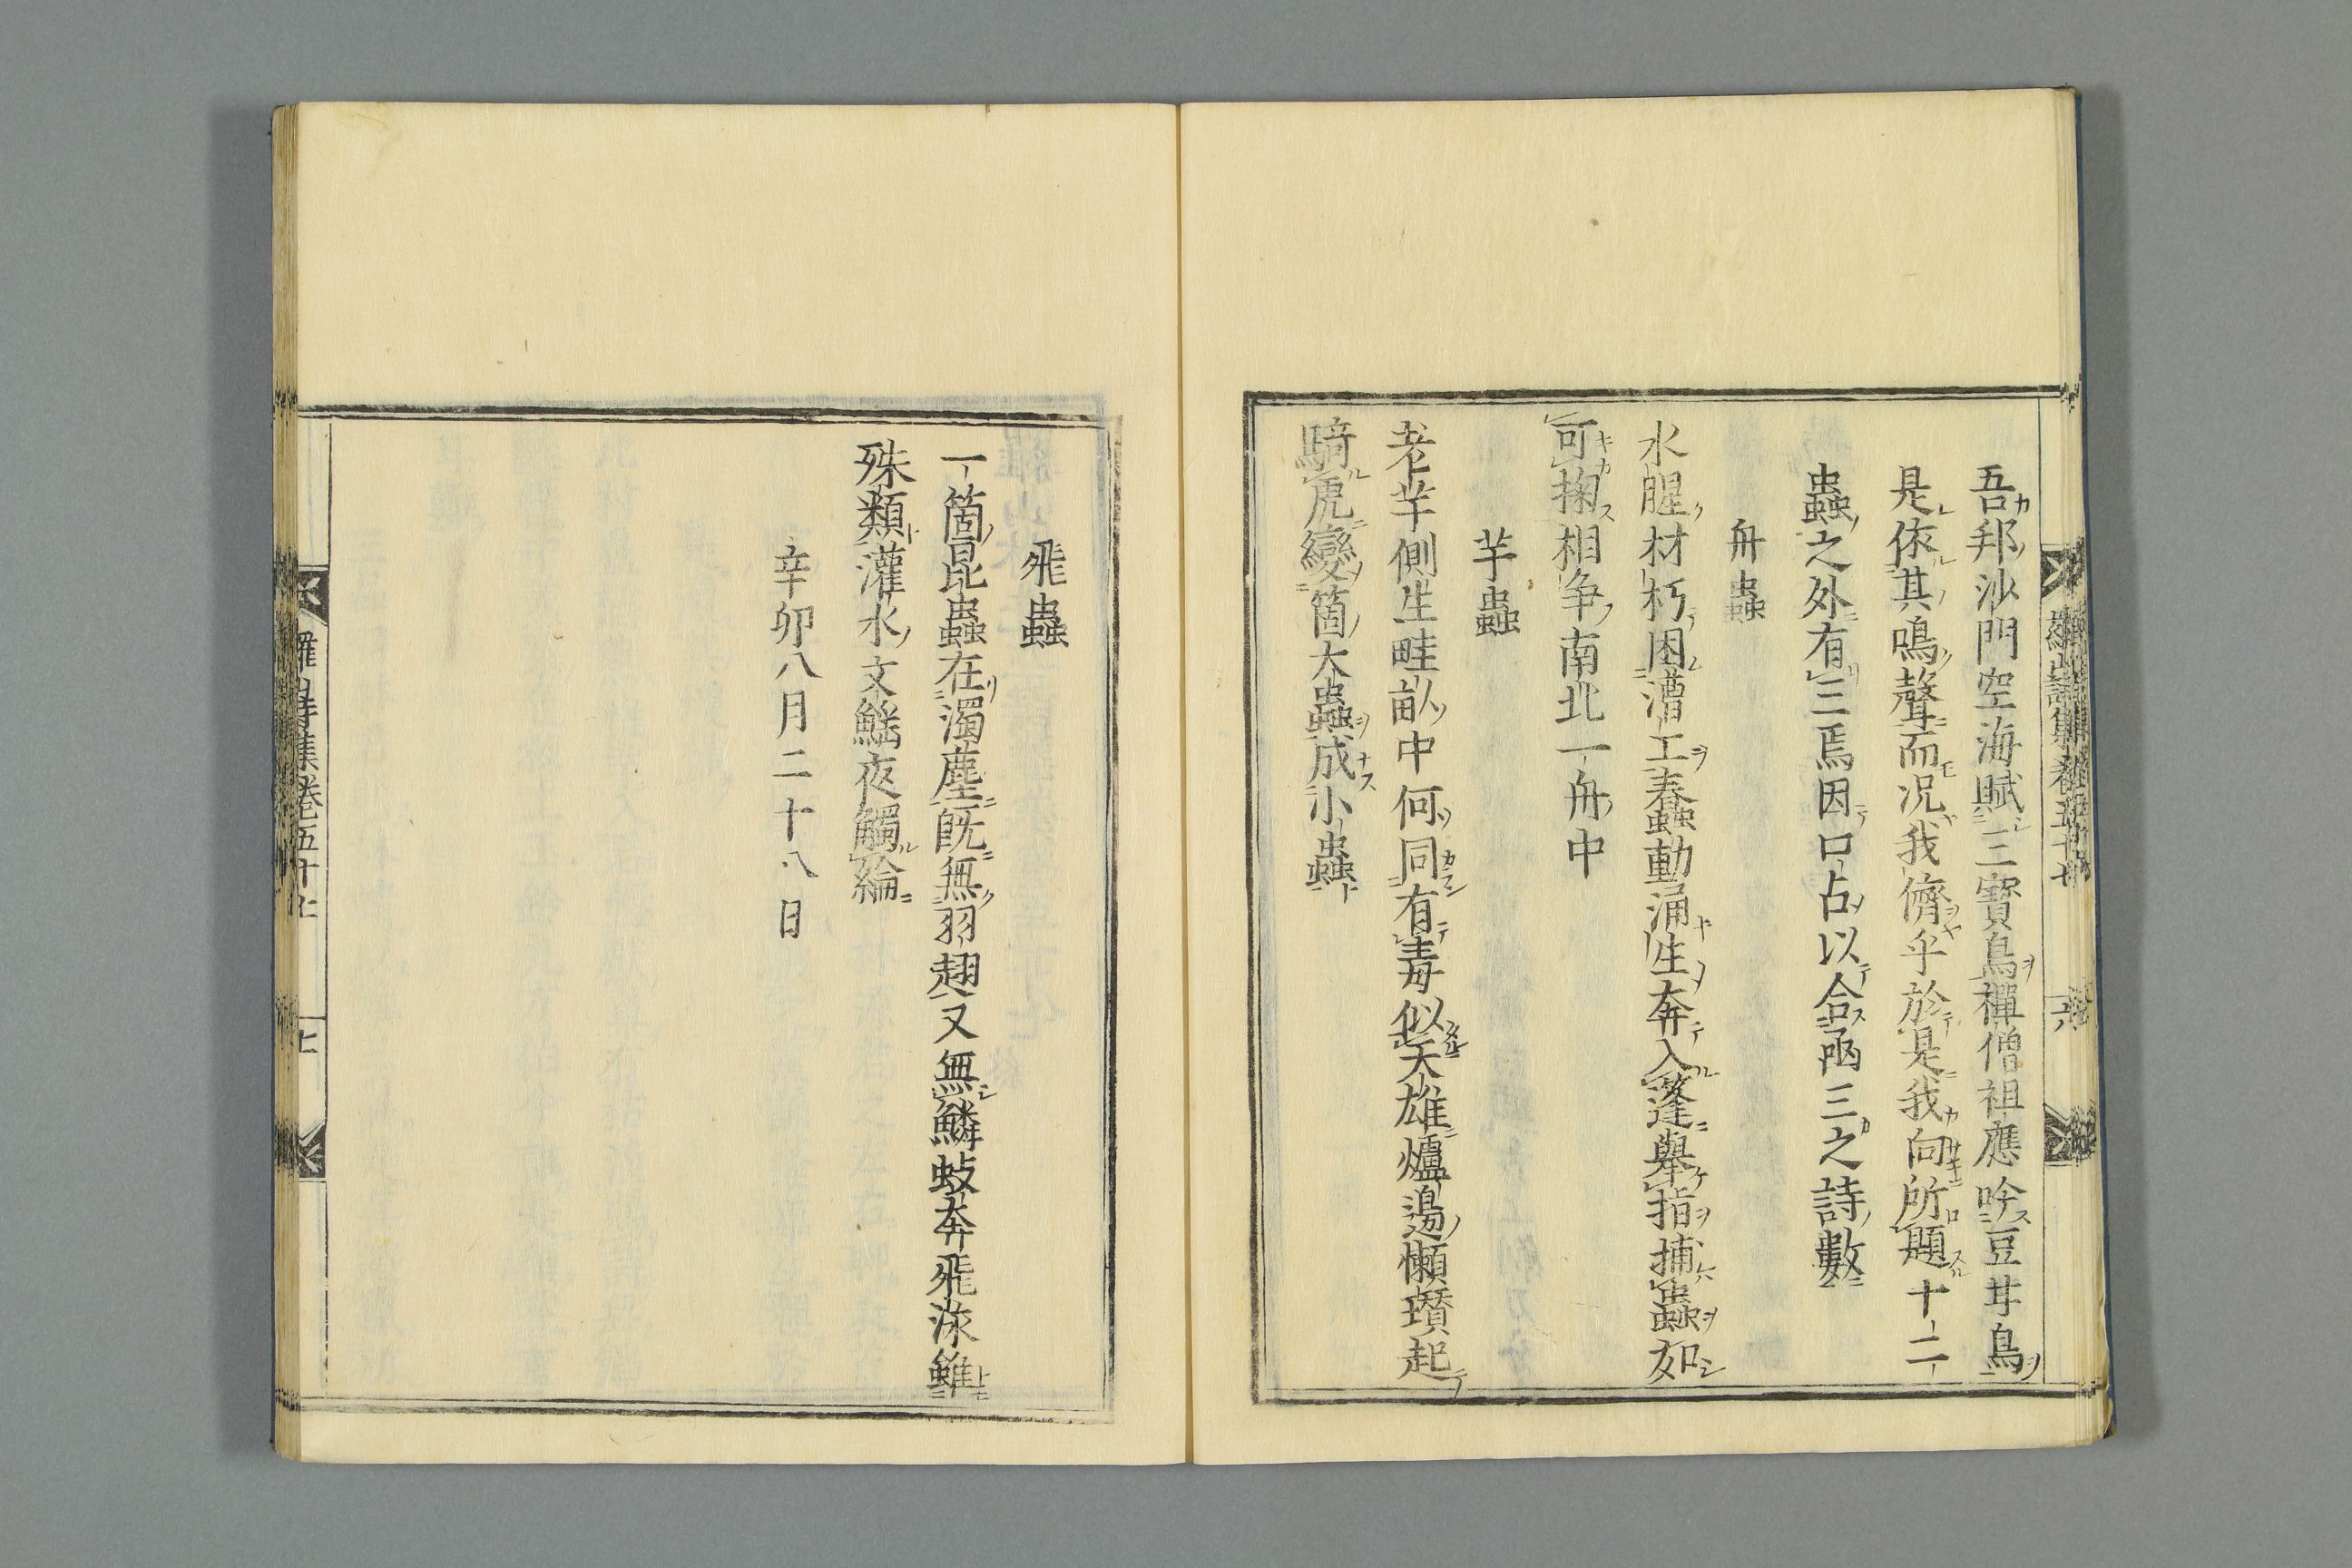 吾邦沙門空海賦三寶鳥禪僧祖應吟豆芽鳥
是依其鳴聲而况我儕乎於是我向所題十二
蟲之外有三焉因口占以合函三之詩數
舟蟲
水腥材朽困漕工蠢動涌生奔入篷擧指捕蟲如
可掬相争南北一舟中
芋蟲
老芋側生畦畝中何同有毒似天雄爐邊懶瓚起
騎虎變箇大蟲成小蟲
飛蟲
一箇昆蟲在濁塵既無羽翅又無鱗蚑奔飛泳雖
殊類灌水文鰩夜觸綸
辛卯八月二十八日
羅山詩集卷五十七
六
七